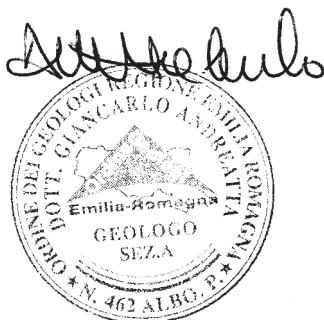 ORDINE DEI GEOLOGI REGIONE EMILIA ROMAGNA
DOTT. GIANCARLO ANDREATTA
Emilia-Romagna
GEOLOGO
SEZ.A
N. 462 ALBO. P.